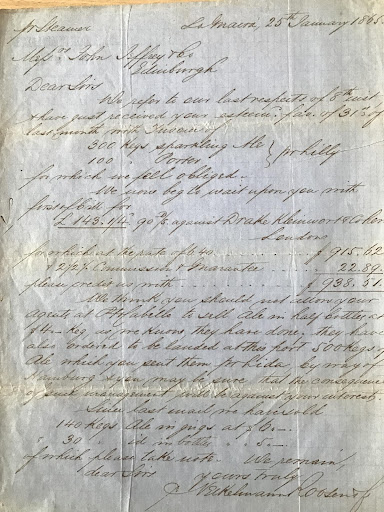 pr Steamer
La Guaira, 25th January 1865
Messrs John Jeffrey & Co
Edinburgh
Dear Sirs
We refer to our last respects of 8th inst
& have just received your esteemed fav. of 31st of
last month with Invoice of
300 kegs sparkling Ale
100 " Porter } pr
for which we feel obliged.
We now beg to wait upon you with
first of bill for
£ 143.1/4. 90 d/s against Drake Kleinwort & Cohen
London
for which at the rate of 6.40 $ 915.62
& 2 1/2 % Commission & Guarantee " 22.89
please credit us with $ 938.51
We think you should not allow your
agents at to sell Ale in half bottles at
keg, as we know they have done. they have
also ordered to be landed at this port 500 kegs of
Ale which you sent them pr by way of
Hamburg & you may be sure that the consequence
of such management will be against your interest.
Since last mail we have sold
140 kegs Ale in pigs at $ 6 -
" 30 " id in bottles " 5 -
of which please take note. We remain,
dear Sirs
yours truly